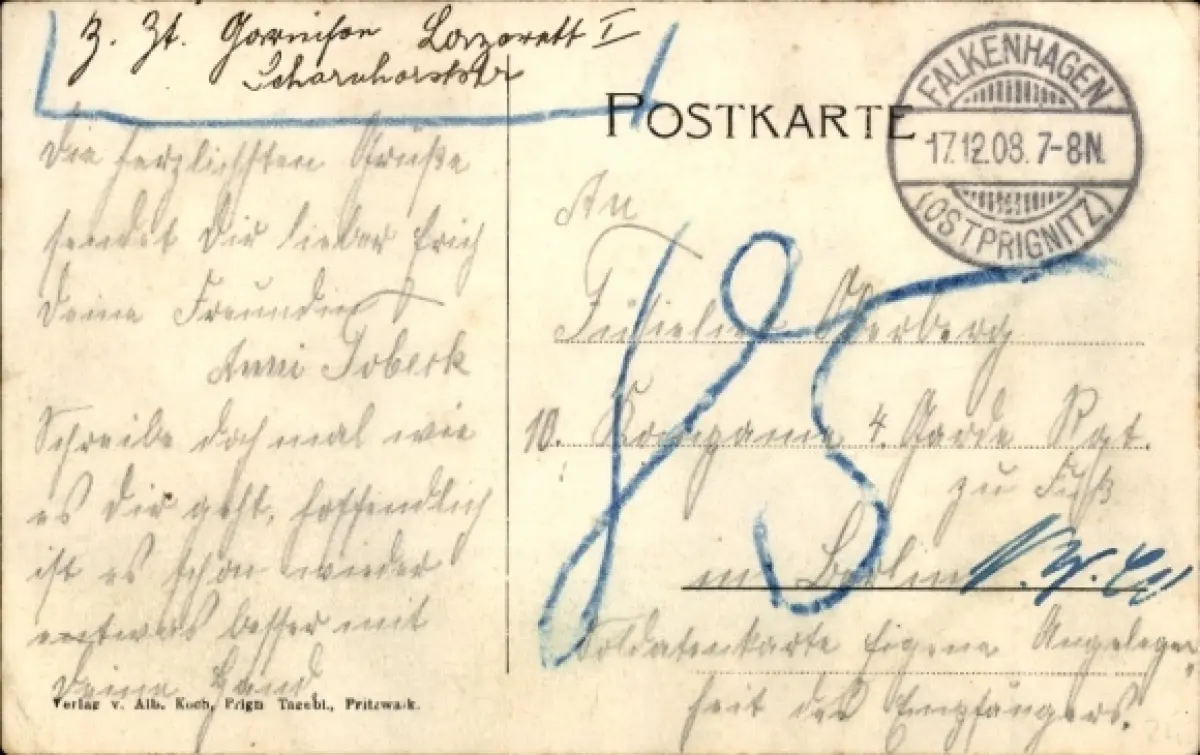 Z. Zt. Garnison Lazarett I
Scharnhorststr
Die herzlichsten Grüße
sendet Dir lieber Erich
Deine Freundin
Anni Tobeck
Schreibe doch mal wie
es Dir geht, hoffendlich
ist es schon wieder
entwas besser mit
Deine Hand
Verlag v. Alb. Koch, Prign Tagebl., Pritzwalk.
POSTKARTE
FALKENHAGEN
17.12.08. 7-8N.
(OSTPRIGNITZ)
An
Füsielier Oberberg
10. Kompanie 4. Garde Rgt.
zu Fuß
in Berlin
85
Soldatenkarte Eigene Angelegen
heit des Empfängers.